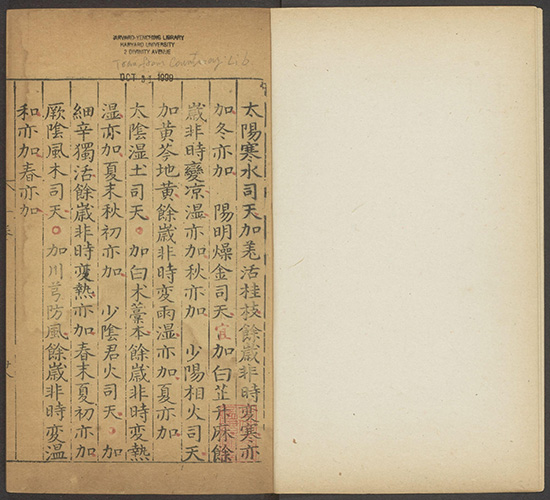 HARVARD-YENCHING LIBRARY
HARVARD UNIVERSITY
2 DIVINITY AVENUE
OCT 31 1999
太陽寒水司天加羌活桂枝餘歲非時变寒亦
加冬亦加　陽明燥金司天宜加白芷升麻餘
歲非時變凉湿亦加秋亦加　少陽相火司天
加黄芩地黄餘歲非時变雨湿亦加夏亦加
太陰湿土司天　加白术藁本餘歲非時变熱
湿亦加夏末秋初亦加　少陰君火司天　加
細辛獨活餘歲非時变熱亦加春末夏初亦加
厥陰風木司天　加川芎防風餘歲非時变温
和亦加春亦加